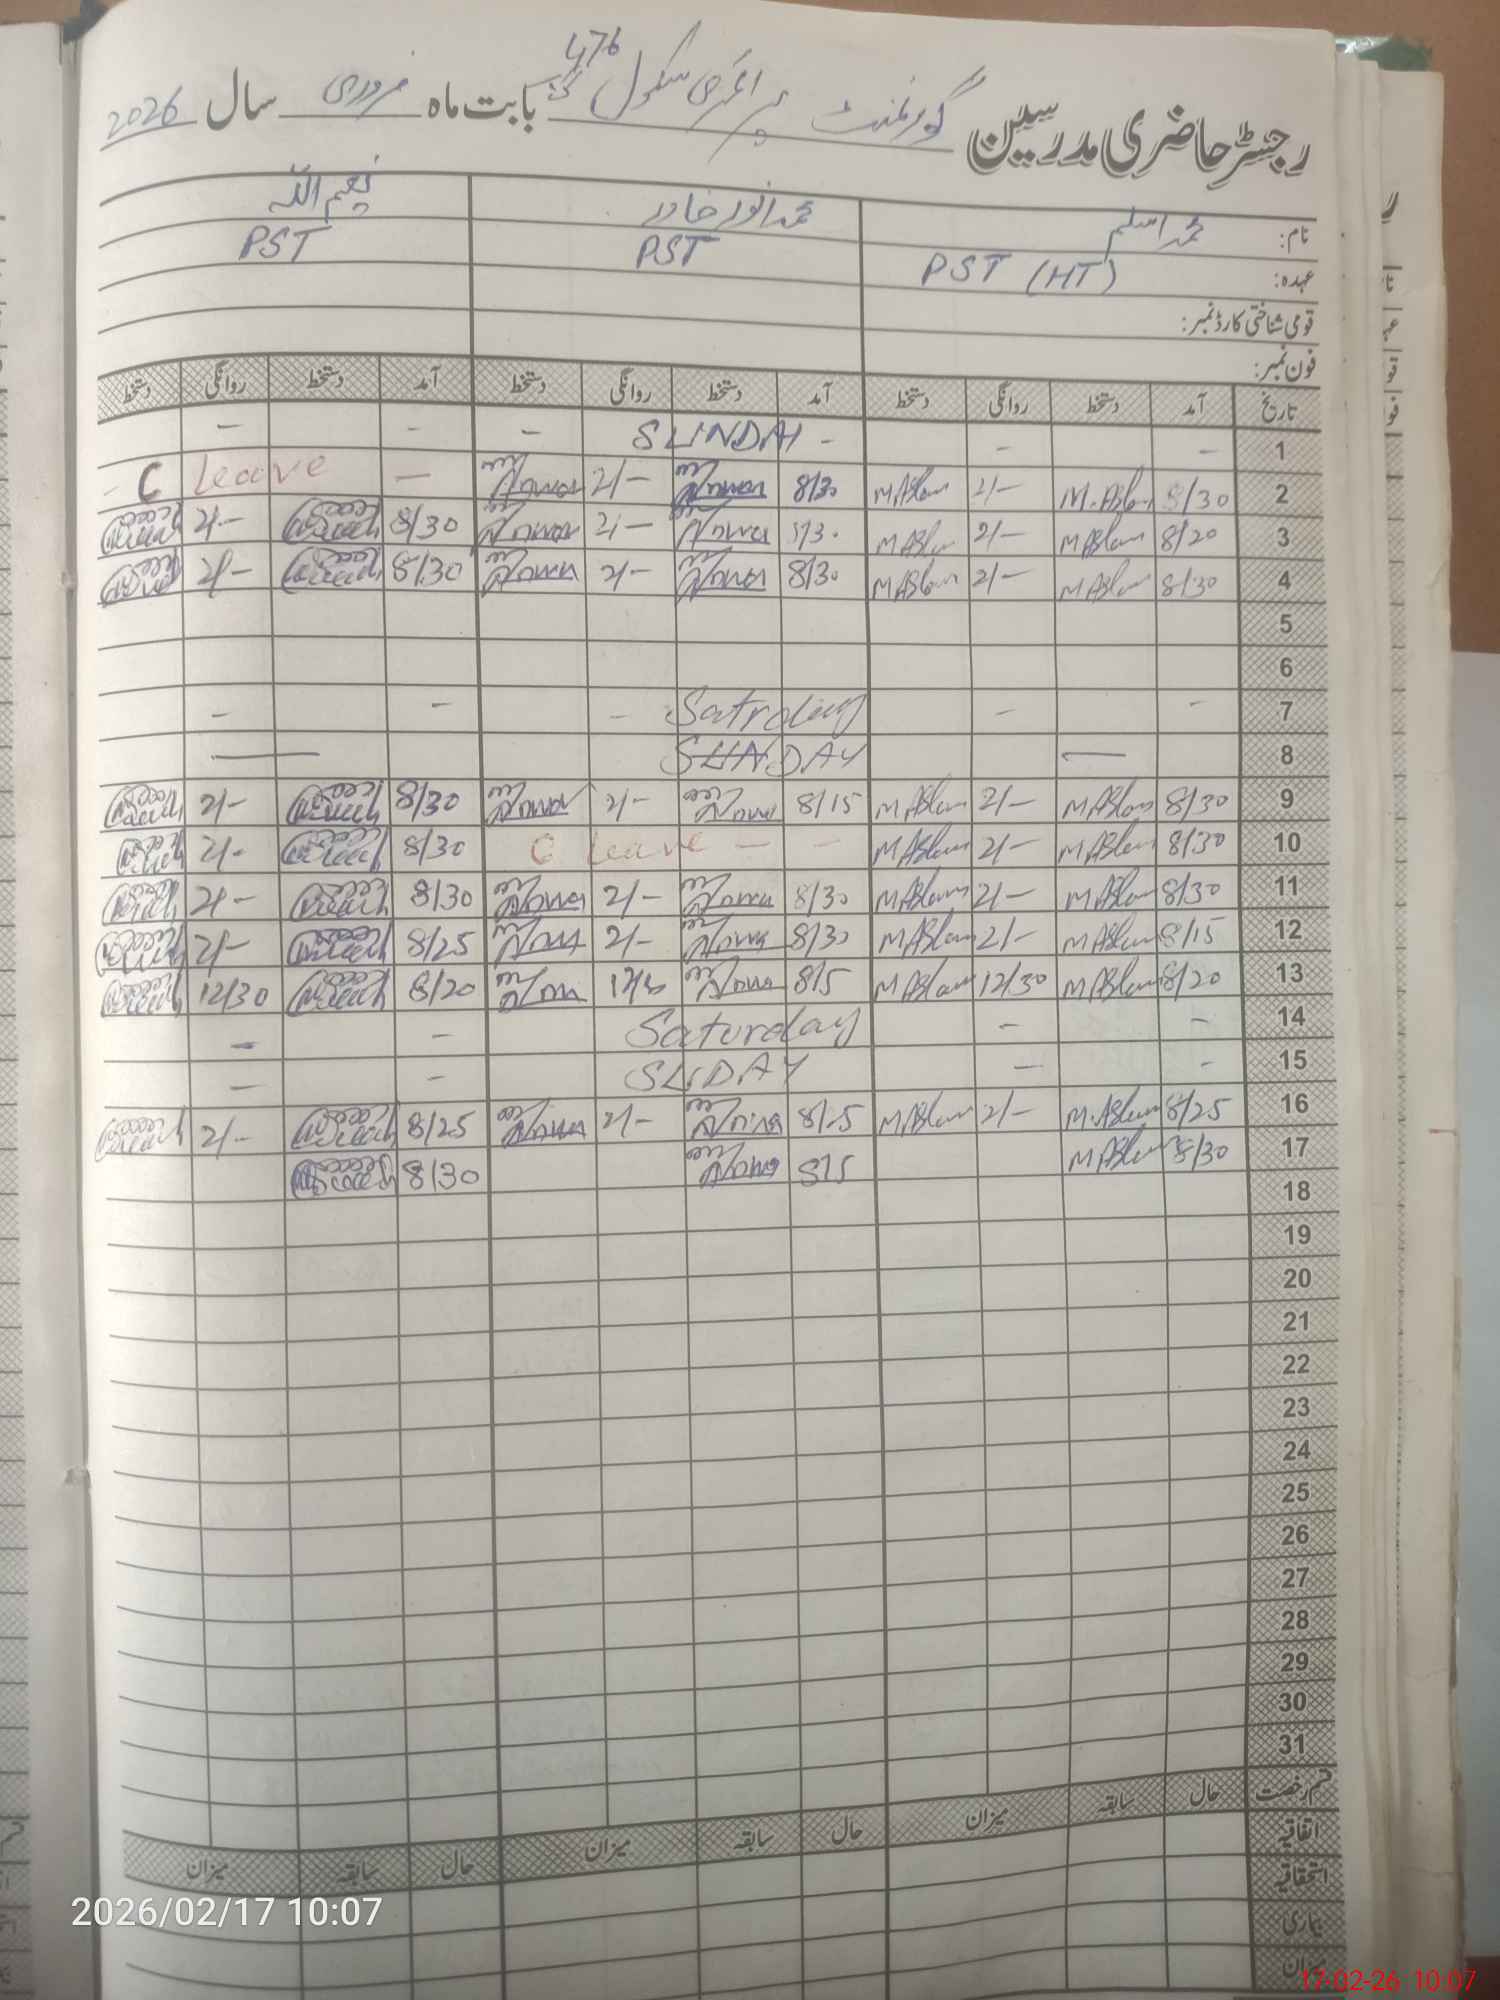 رجسٹر حاضری مدرسین گورنمنٹ پرائمری سکول 476 بابت ماہ فروری سال 2026
نام: محمد اسلم محمد انور خاور نعیم اللہ
عہدہ: PST (HT) PST PST
قومی شناختی کارڈ نمبر:
فون نمبر:
تاریخ آمد دستخط روانگی دستخط آمد دستخط روانگی دستخط آمد دستخط روانگی دستخط
1 — — - SUNDAY — - —
2 8/30 M.Aslam 2/— M Aslam 8/30 Anwar 2/— Anwar — C leave
3 8/20 M Aslam 2/— M Aslam 8/30 Anwar 2/— Anwar 8/30 2/—
4 8/30 M Aslam 2/— M Aslam 8/30 Anwar 2/— Anwar 8/30 2/—
5
6
7 - — Satrday — - —
8 — SUNDAY —
9 8/30 M Aslam 2/— M Aslam 8/15 Anwar 2/— Anwar 8/30 2/—
10 8/30 M Aslam 2/— M Aslam C leave — — 8/30 2/-
11 8/30 M Aslam 2/— M Aslam 8/30 Anwar 2/— Anwar 8/30 2/—
12 8/15 M Aslam 2/— M Aslam 8/30 Anwar 2/- Anwar 8/25 2/—
13 8/20 M Aslam 12/30 M Aslam 8/5 Anwar Anwar 8/20 12/30
14 — — Saturday — —
15 - — SUDAY — —
16 8/25 M.Aslam 2/— M Aslam 8/25 Anwar 2/— Anwar 8/25 2/—
17 8/30 M Aslam Anwar 8/30
18
19
20
21
22
23
24
25
26
27
28
29
30
31
قسم رخصت حال سابقہ میزان حال سابقہ میزان حال سابقہ میزان
اتفاقیہ
استحقاقیہ
بیماری
2026/02/17 10:07
17-02-26 10:07